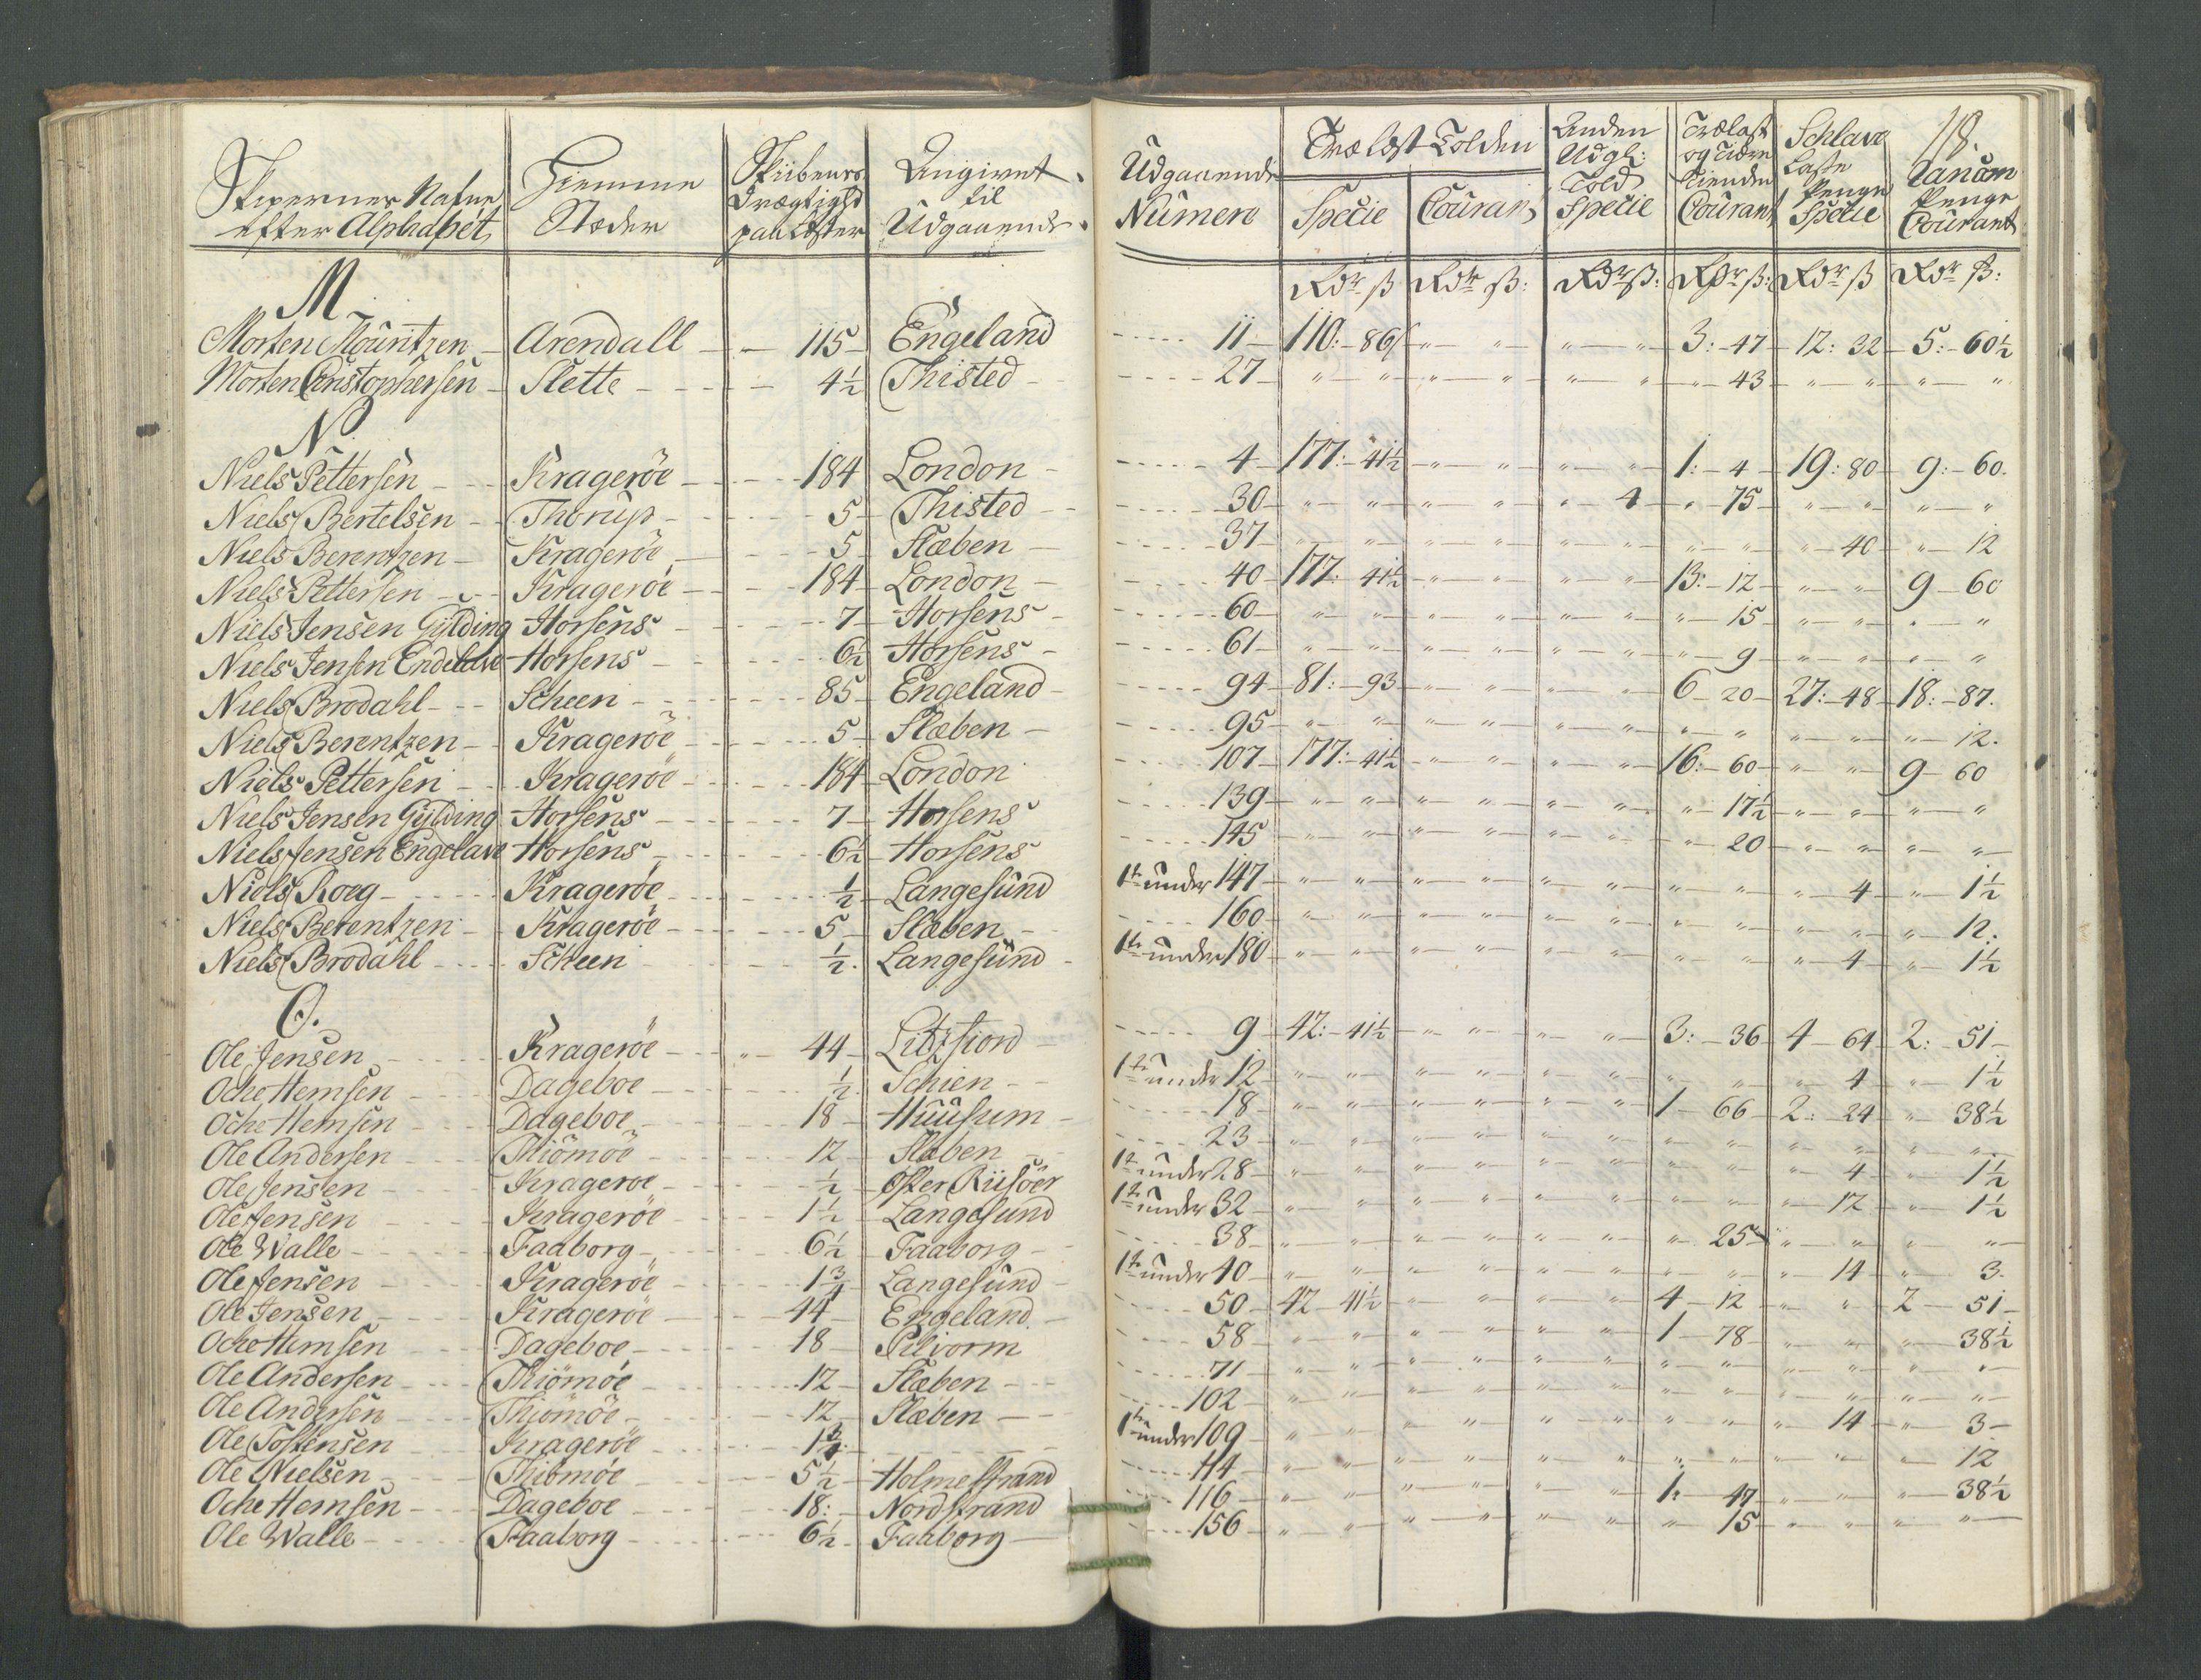 18.
Skipernes Nafne efter Alphabet | Hiemme Stæder | Skibenes Drægtighd paa Læster | Angivet til Udgaaende | Udgaaende Numere | Trælast Tolden Specie | Courant | Anden Udgl: Told Specie | Trælast og Tiære Tienden Courant | Schlave Caste Penge Specie | Canom Penge Courant
Rdr ß | Rdr ß: | Rdr ß: | Rdr ß: | Rdr ß | Rdr ß:
M.
Morten Mouritzen | Arendall | 115 | Engeland | 11 | 110:-86 | " " | " " | 3:-47 | 12:32 | 5:-60½
Morten Christophersen | Slette | 4½ | Thisted | 27 | " " | " " | " " | "-43 | " " | " "
N.
Niels Pettersen | Krageröe | 184 | London | 4 | 177:-41½ | " " | " " | 1:-4 | 19:80 | 9:-60.
Niels Bertelsen | Thorup | 5 | Thisted | 30 | " " | " " | " 4 | "-75 | " " | " "
Niels Berentzen | Krageröe | 5 | Slæben | 37 | " " | " " | " " | " " | "-40 | "-12
Niels Pettersen | Krageröe | 184 | London | 40 | 177:41½ | " " | " " | 13:-12 | " " | 9-60
Niels Jensen Gylding | Horsens | 7 | Horsens | 60 | " " | " " | " " | "-15 | " " | " "
Niels Jensen Endelave | Horsens | 6½ | Horsens | 61 | " " | " " | " " | "-9 | " " | " "
Niels Brodahl | Scheen | 85 | Engeland | 94 | 81:-93 | " " | " " | 6-20 | 27:-48 | 18:-87.
Niels Berentzen | Krageröe | 5 | Slæben | 95 | " " | " " | " " | " " | " " | "-12.
Niels Pettersen | Krageröe | 184 | London | 107 | 177:-41½ | " " | " " | 16:-60 | " " | 9-60
Niels Jensen Gylding | Horsens | 7 | Horsens | 139 | " " | " " | " " | "-17½ | " " | " "
Niels Jensen Engelave | Horsens | 6½ | Horsens | 145 | " " | " " | " " | "-20 | " " | " "
Niels Roeg | Kragerøe | ½ | Langesund | 1te under 147 | " " | " " | " " | " " | "-4 | "-1½
Niels Berentzen | Krageröe | 5 | Slæben | 160 | " " | " " | " " | " " | " " | "-12.
Niels Brodahl | Scheen | ½. | Langesund | 1te under 180 | " " | " " | " " | " " | "-4 | "-1½
O.
Ole Jensen | Kragerøe | 44 | | 9 | 42:-41½ | " " | " " | 3:-36 | 4-64 | 2:-51
Oche Hemsen | Dageboe | ½ | Schien | 1te under 12 | " " | " " | " " | " " | "-4 | "-1½
Oche Hemsen | Dageboe | 18 | Huusum | 18 | " " | " " | " " | 1-66 | 2:24 | "-38½
Ole Andersen | Thiömöe | 12 | Slæben | 23 | " " | " " | " " | " " | " " | " "
Ole Jensen | Kragerøe | ½ | Øster Riisöer | 1te under 28 | " " | " " | " " | " " | "-4 | "-1½
Ole Jensen | Kragerøe | 1½ | Langesund | 1te under 32 | " " | " " | " " | " " | "-12 | "-1½
Ole Walle | Faaborg | 6½ | Faaborg | 38 | " " | " " | " " | "-25 | " " | " "
Ole Jensen | Kragerøe | 1¾ | Langesund | 1te under 40 | " " | " " | " " | " " | "-14 | "-3.
Ole Jensen | Kragerøe | 44 | Engeland | 50 | 42-41½ | " " | " " | 4-12 | " " | 2-51
Oche Hemsen | Dageboe | 18 | Pilvorm | 58 | " " | " " | " " | 1-78 | " " | "-38½
Ole Andersen | Thiömöe | 12 | Slæben | 71 | " " | " " | " " | " " | " " | " "
Ole Andersen | Thjömöe | 12 | Slæben | 102 | " " | " " | " " | " " | " " | " "
Ole Tostensen | Kragerøe | 1¾ | | 1te under 109 | " " | " " | " " | " " | "-14 | "-3
Ole Nielsen | Thiömöe | 5½ | Holmestrand | 114 | " " | " " | " " | " " | " " | "-12
Oche Hemsen | Dageboe | 18: | Nordstrand | 116 | " " | " " | " " | 1:47 | " " | "-38½
Ole Walle | Faaborg | 6½ | Faaborg | 156 | " " | " " | " " | "-15 | " " | " "